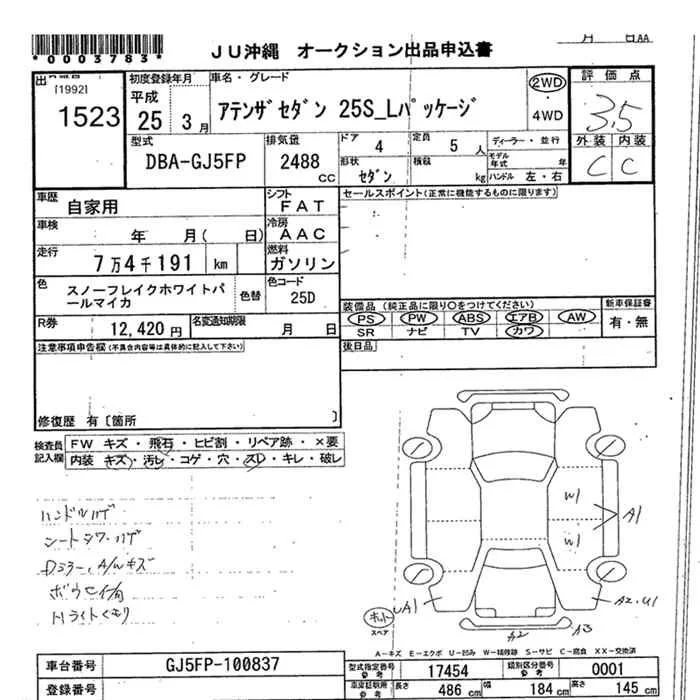 *0003783*
JU沖縄 オークション出品申込書
月 日AA
[1992]
1523
初度登録年月
平成
25 3月
車名・グレード
アテンザセダン 25S_Lパッケージ
2WD
・
4WD
評価点
3.5
外装 内装
C C
型式
DBA-GJ5FP
排気量
2488
cc
ドア
4
定員
5 人
ディーラー・並行
モデル年式 年
形状
セダン
積載
kg
ハンドル 左・右
車歴
自家用
シフト
FAT
セールスポイント(正常に機能するものに限ります)
車検
年 月( 日)
冷房
AAC
走行
7万4千191 km
燃料
ガソリン
色
スノーフレイクホワイトパ
ールマイカ
色替
色コード
25D
R券
12,420 円
名変通知期限
月 日
装備品(純正品に限り○をつけてください)
PS PW ABS エアB AW
SR ナビ TV カワ
新車保証書
有・無
注意事項申告欄(不具合内容等は具体的に記入して下さい)
後日品
修復歴 有〔箇所 〕
検査員
記入欄
FW キズ・飛石・ヒビ割・リペア跡・×要
内装 キズ・汚レ・コゲ・穴・スレ・キレ・破レ
ハンドルハゲ
シートシワ・ハゲ
Dミラー、A/Wキズ
ボウセイ有
Hライトくもり
W1
W1
A1
UA1
A2・U1
A2
A3
スペア
A-キズ E-エクボ U-凹み W-補修跡 S-サビ C-腐食 XX-交換済
車台番号
GJ5FP-100837
型式指定番号
参考
17454
類別区分番号
参考
0001
登録番号
車庫証明用
参考
長さ
486 cm
幅
184 cm
高さ
145 cm